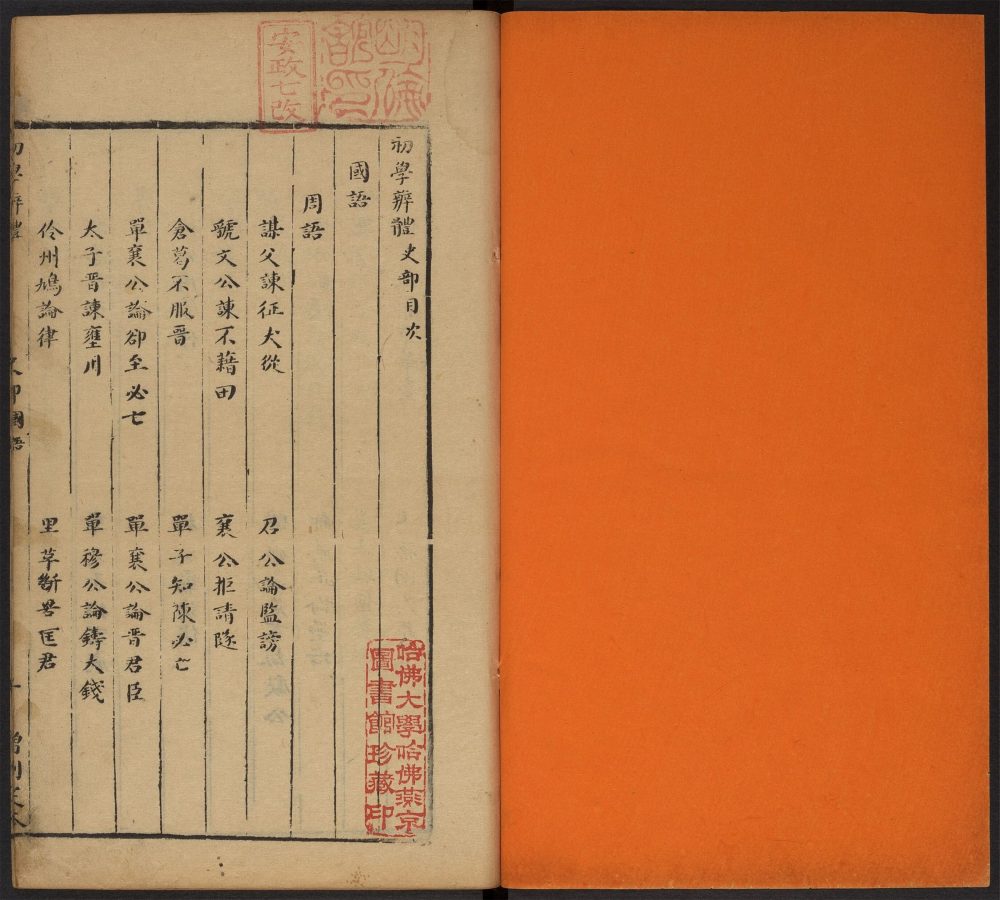 初學辨體史部目次
國語
周語
謀父諫征犬從 召公論監謗
虢文公諫不藉田 襄公拒請隧
倉葛不服晉 單子知陳必亡
單襄公論郤至必亡 單襄公論晉君臣
太子晉諫壅川 單穆公論鑄大錢
伶州鳩論律 里革斷罟匡君
初學辨體
國語
安政七改
哈佛大學哈佛燕京
圖書館珍藏印